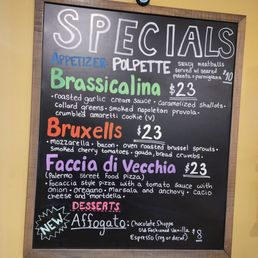 SPECIALS
APPETIZER POLPETTE saucy meatballs
served w/ seared
polenta + parmigiana $10
Brassicalina $23
• roasted garlic cream sauce • caramelized shallots •
collard greens • smoked napoletan provola •
crumbled amaretti cookie (v)
Bruxells $23
• mozzarella • bacon • oven roasted brussel sprouts •
smoked cherry tomatoes • gouda, bread crumbs.
Faccia di Vecchia $23
(Palermo street food Pizza)
• focaccia style pizza with a tomato sauce with
onion • oregano • Marsala and anchovy • cacio
cheese and mortdella •
DESSERTS
NEW
Affogato: Chocolate Shoppe
Old Fashioned Vanilla
Espresso (reg or decaf) $8